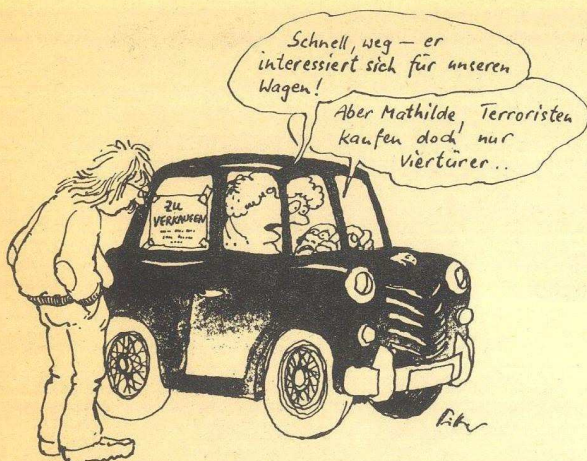 Schnell, weg – er
interessiert sich für unseren
Wagen!
Aber Mathilde, Terroristen
kaufen doch nur
Viertürer..
ZU
VERKAUFEN